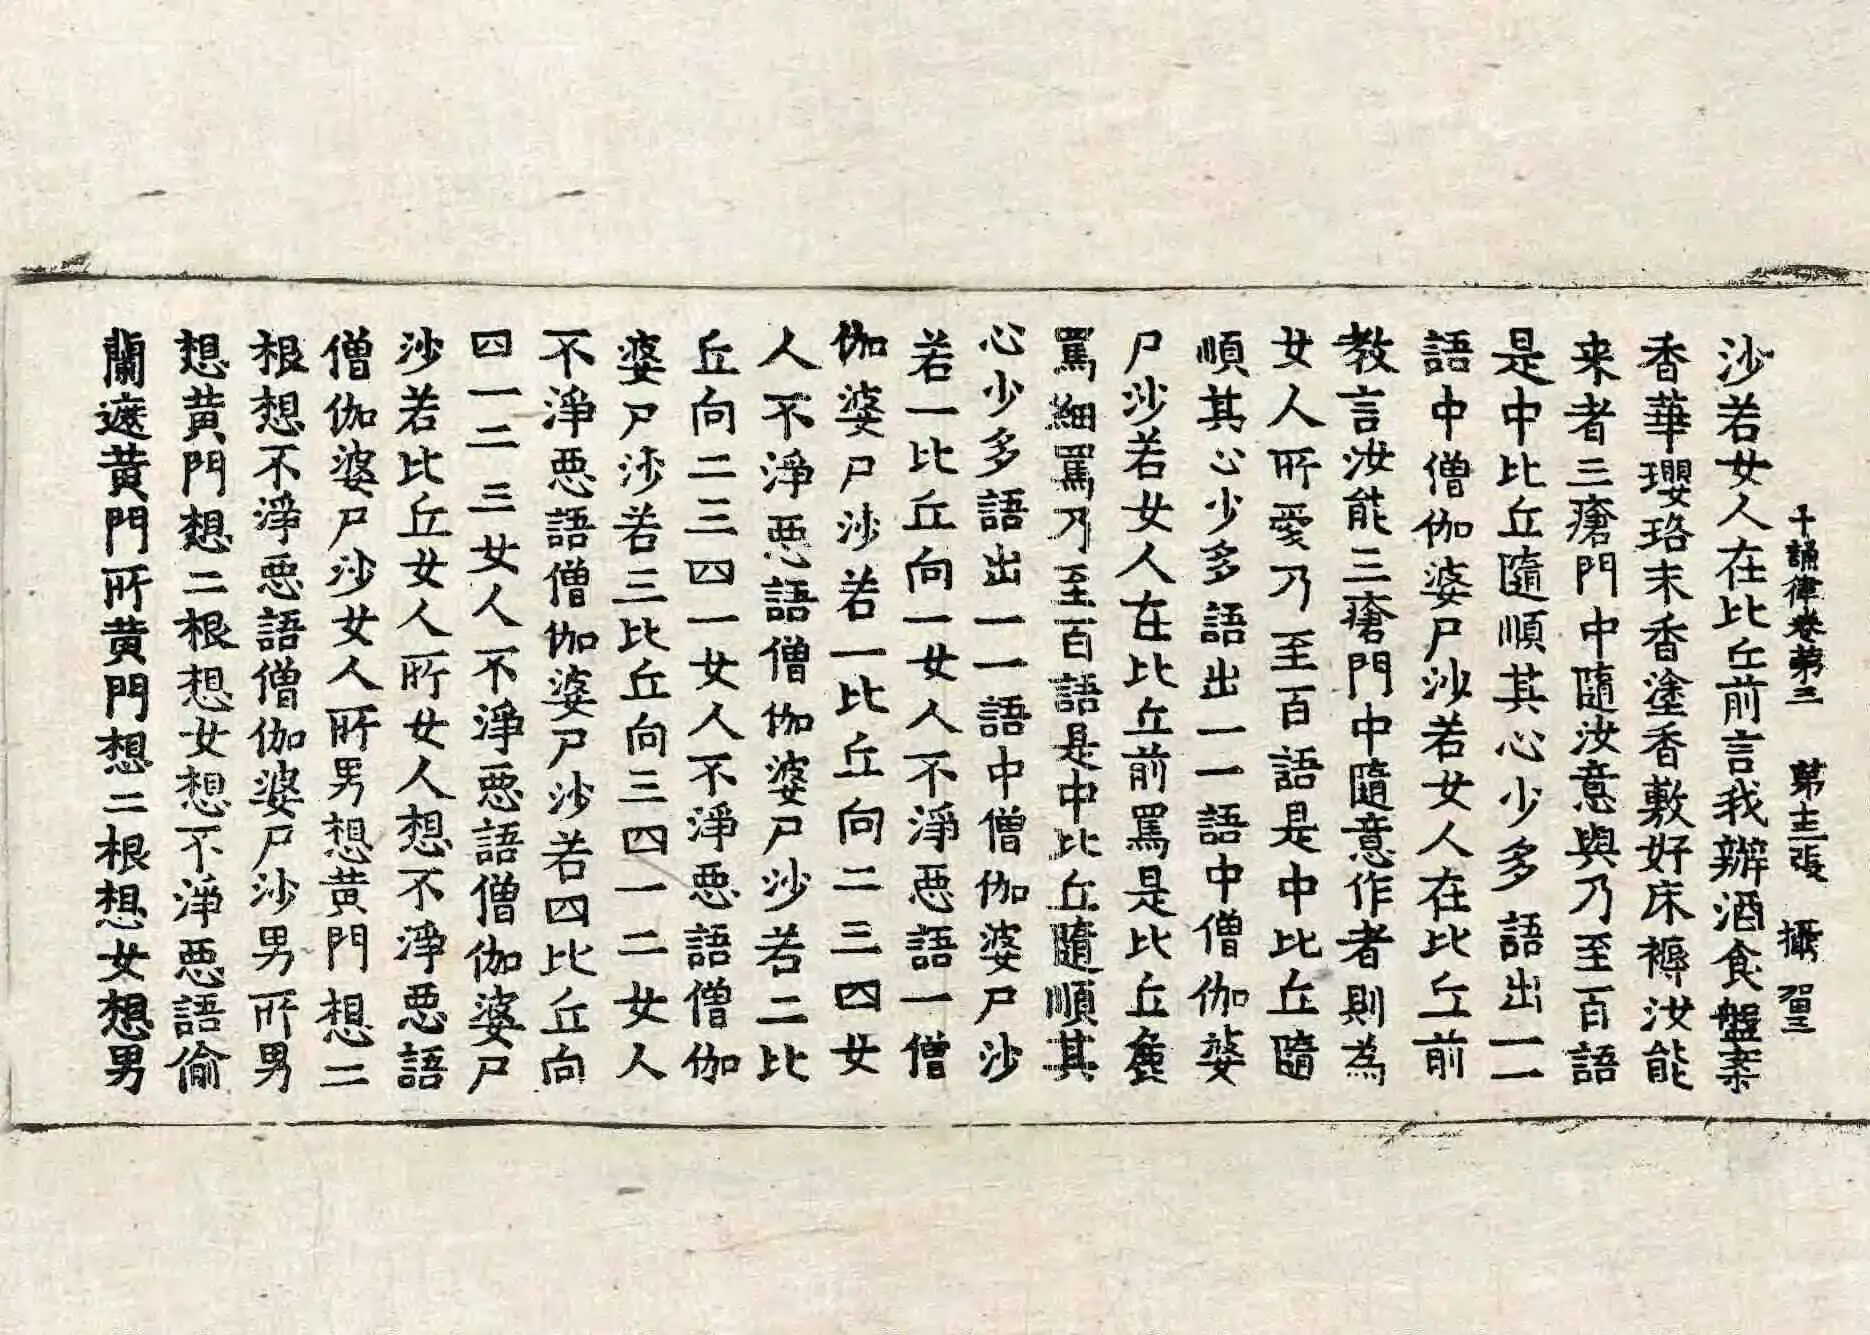 十誦律卷第三 第十三張 攝
沙若女人在比丘前言我辦酒食盤案
香華瓔珞末香塗香敷好床褥汝能
来者三瘡門中隨汝意與乃至百語
是中比丘隨順其心少多語出一一
語中僧伽婆尸沙若女人在比丘前
教言汝能三瘡門中隨意作者則為
女人所愛乃至百語是中比丘隨
順其心少多語出一一語中僧伽婆
尸沙若女人在比丘前罵是比丘麁
罵細罵乃至百語是中比丘隨順其
心少多語出一一語中僧伽婆尸沙
若一比丘向一女人不淨悪語一僧
伽婆尸沙若一比丘向二三四女
人不淨悪語僧伽婆尸沙若二比
丘向二三四一女人不淨悪語僧伽
婆尸沙若三比丘向三四一二女人
不淨悪語僧伽婆尸沙若四比丘向
四一二三女人不淨悪語僧伽婆尸
沙若比丘女人所女人想不淨悪語
僧伽婆尸沙女人所男想黄門想二
根想不淨悪語僧伽婆尸沙男所男
想黄門想二根想女想不淨悪語偷
蘭遮黄門所黄門想二根想女想男